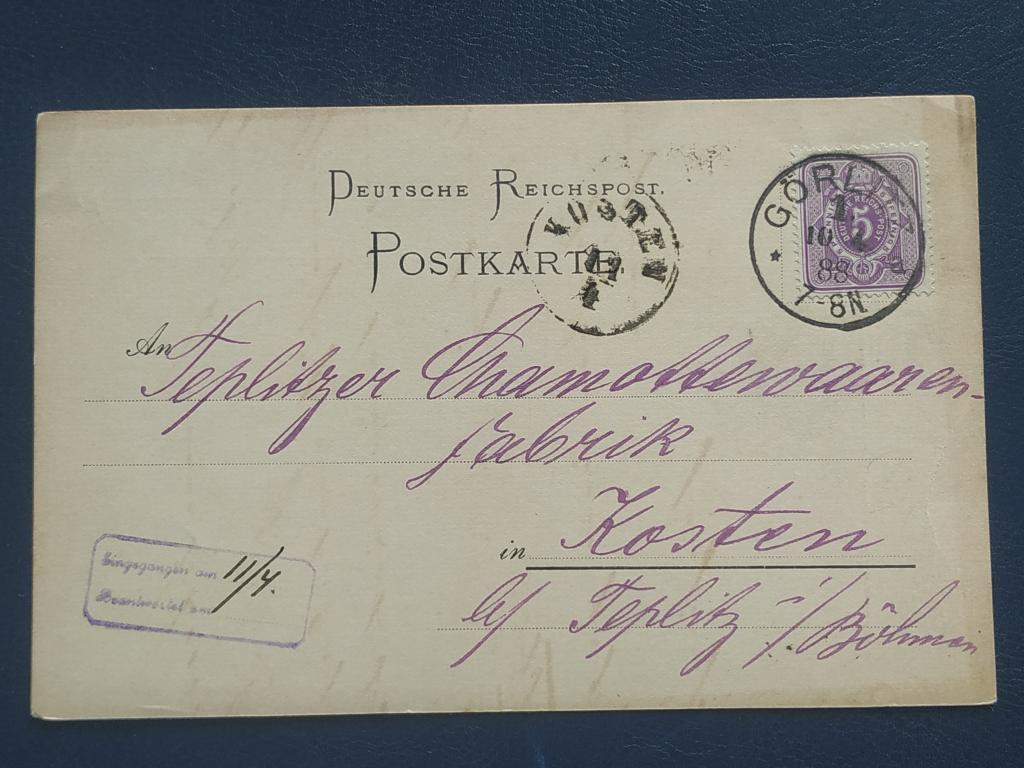 DEUTSCHE REICHSPOST.
POSTKARTE
KOSTEN
4
GÖRL
1
10 4
88
8N.
5
An Teplitzer Chamottewaaren-
fabrik
in Kosten
b/ Teplitz i/Böhmen
Eingegangen am 11/4.
Beantwortet am